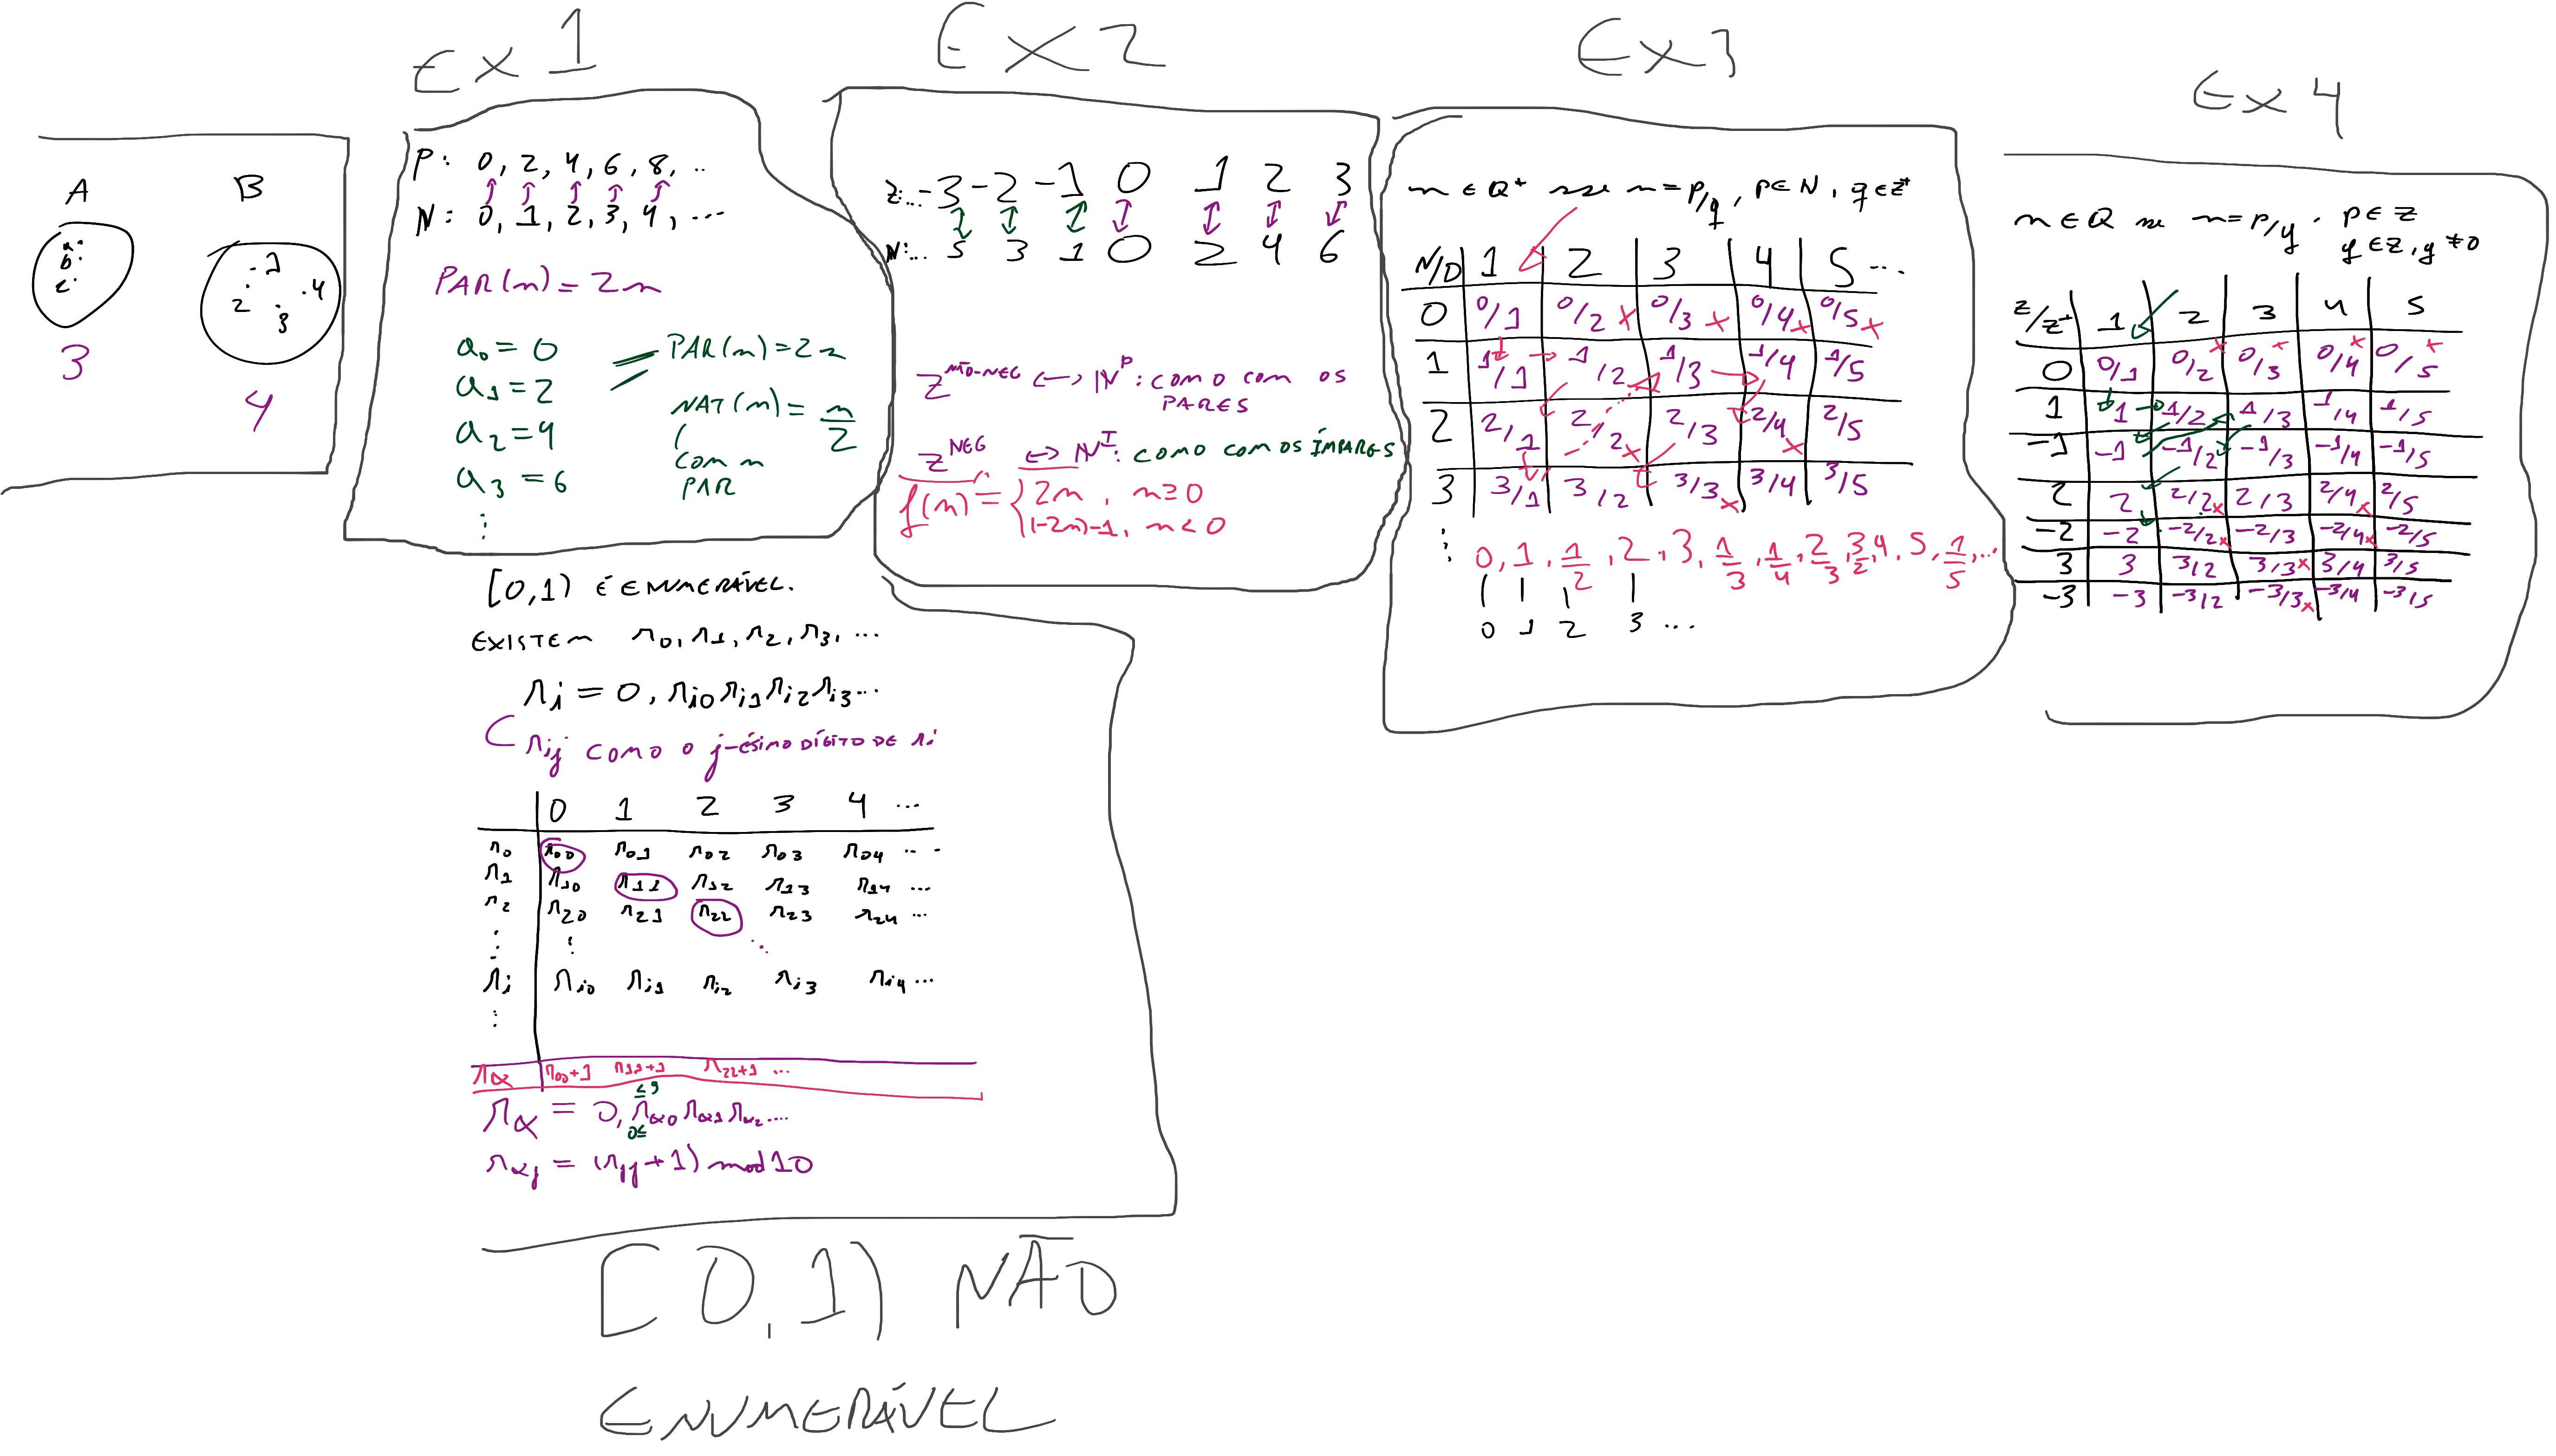 A B
a
b
c
1
2
3
4
3
4
Ex 1
P: 0, 2, 4, 6, 8, ..
N: 0, 1, 2, 3, 4, ...
PAR(n) = 2n
a0 = 0
a1 = 2
a2 = 4
a3 = 6
⋮
PAR(n) = 2n
NAT(n) = n/2
COM n
PAR
Ex 2
Z:.. -3 -2 -1 0 1 2 3
N:... 5 3 1 0 2 4 6
Z^NÃO-NEG ↔ N^P: COMO COM OS
PARES
Z^NEG ↔ N^I: COMO COM OS ÍMPARES
f(n) = { 2n, n≥0
(-2n)-1, n<0
Ex 3
n ∈ Q+ sse n = p/q, p∈N, q∈Z+
N/D 1 2 3 4 5 ...
0 0/1 0/2 x 0/3 x 0/4 x 0/5 x
1 1/1 1/2 1/3 1/4 1/5
2 2/1 2/2 x 2/3 2/4 x 2/5
3 3/1 3/2 3/3 x 3/4 3/5
⋮ 0, 1, 1/2, 2, 3, 1/3, 1/4, 2/3, 3/2, 4, 5, 1/5, ...
0 1 2 3 ...
Ex 4
n ∈ Q se n = p/y . p∈Z
y∈Z, y≠0
Z/Z+ 1 2 3 4 5
0 0/1 0/2 x 0/3 x 0/4 x 0/5 x
1 1 1/2 1/3 1/4 1/5
-1 -1 -1/2 -1/3 -1/4 -1/5
2 2 2/2 x 2/3 2/4 x 2/5
-2 -2 -2/2 x -2/3 -2/4 x -2/5
3 3 3/2 3/3 x 3/4 3/5
-3 -3 -3/2 -3/3 x -3/4 -3/5
[0,1) É ENUMERÁVEL.
EXISTEM r0, r1, r2, r3, ...
ri = 0, ri0 ri1 ri2 ri3 ...
rij COMO O j-ÉSIMO DÍGITO DE ri
0 1 2 3 4 ...
r0 r00 r01 r02 r03 r04 ...
r1 r10 r11 r12 r13 r14 ...
r2 r20 r21 r22 r23 r24 ...
⋮ ⋮ ⋱
ri ri0 ri1 ri2 ri3 ri4 ...
⋮
rα r00+1 r11+1 r22+1 ...
≤9
rα = 0, rα0 rα1 rα2 ....
0≤
rαj = (rjj+1) mod 10
[0,1) NÃO
ENUMERÁVEL